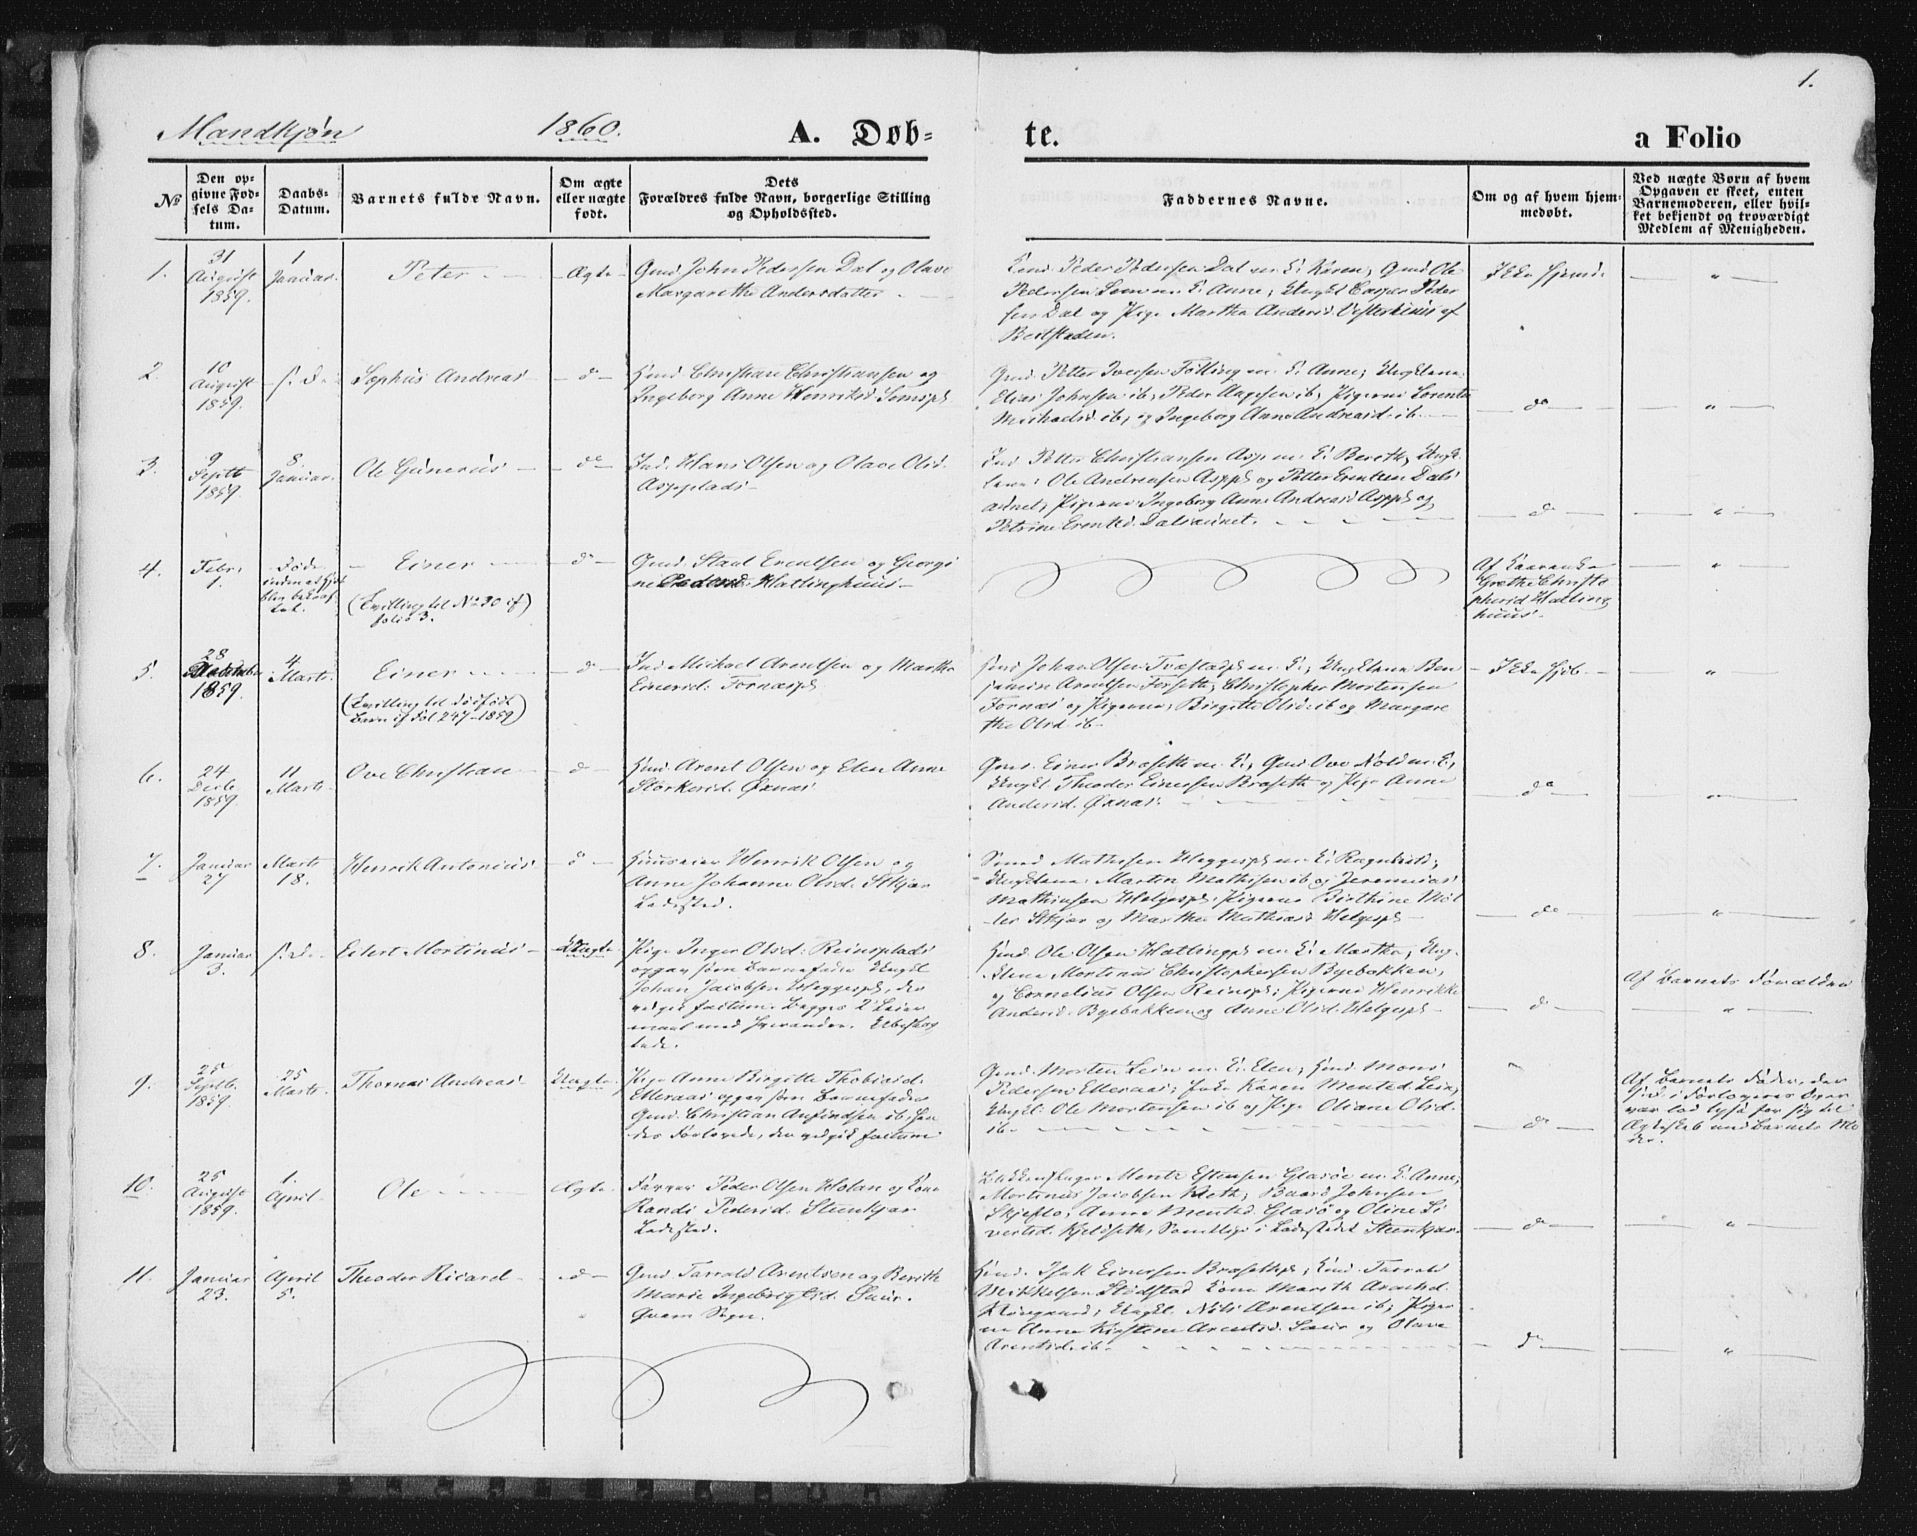 1.
Mandkjøn 1860. A. Døb- te. a Folio
№
Den op-
givne Fød-
sels Da-
tum.
Daabs-
Datum.
Barnets fulde Navn.
Om ægte
eller uægte
født.
Dets
Forældres fulde Navn, borgerlige Stilling
og Opholdssted.
Faddernes Navne.
Om og af hvem hjem-
medøbt.
Ved uægte Børn af hvem
Opgaven er skeet, enten
Barnemoderen, eller hvil-
ket bekjendt og troværdigt
Medlem af Menigheden.
1.
31
August
1859.
1
Januar.
Peter
Ægte
Gmd. John Pedersen Dal og Olave
Margarethe Andersdatter
Peder Pedersen Dal m. K. Karen, Gmd Ole
Pedersen m. K. Anne, Ungkl Casper Peder
sen Dal og Pige Martha Andersd. af
Beitstaden.
Ikke hjemd.
"
2.
10
August
1859.
s. D.
Sophus Andreas
do
Hmd Christian Christiansen og
Ingeborg Anne Henriksd Semspl
Gmd. Petter Iversen Følling m. K. Anne, Ungklene
Elias Johnsen ib, Peder Aagesen ib, Pigerne Lorentse
Michaelsd. ib, og Ingeborg Anna Andreasd. ib.
do
"
3.
9
Septb
1859.
8
Januar.
Ole Gunerius
do
Ind. Hans Olsen og Olave Olsd.
Aspplads
Ind Petter Christiansen Asp m. K. Bereth, Ungk.
lene: Ole Andreasen Asppl og Petter Erentsen Dals
aunet, Pigerne Ingeborg Anne Andreasd Asppl og
Petrine Erentsd. Dalsaunet.
do
"
4.
Febr.
1.
Døde
inden
blev bekræf
tet.
Einer
(Tvilling til No 30 if
folio 3.
do
Gmd. Staal Erentsen og Georgi
ne Pedersd. Hatlinghuus
Af
Grethe Christo
phersd Hatling
huus.
"
5.
28
1859.
4
Marts.
Einer
(Tvilling til dødfødt
Barn if Fol 247-1859)
do
Ind Michael Arentsen og Martha
Einersd: Fornæspl
Gmd Johan Olsen m. K., Ungklene Ben
jamin Arentsen Forseth, Christopher Mortensen
Fornæs og Pigerne, Birgitte Olsd ib og Margare
the Olsd ib
Ikke hjdb.
"
6.
24
Decb
1859.
11
Marts.
Ove Christian
do
Hmd. Arent Olsen og Elen Anne
Størkersd. Øxnæs
Gmd. Einer Braseth m. K., Gmd Ove m. K,
Ungkl Theodor Einersen Braseth og Pige Anne
Andersd. Øxnæs.
do
"
7.
Januar
27
Marts
18.
Henrik Antonius
do
Huuseier Henrik Olsen og
Anne Johanne Olsd. Stkjær
Ladested.
Mathisen Heggespl m. K. Ragnhild,
Ungklene: Martin Mathisen ib og Jeremias
Mathiesen Helgespl. Pigerne Birthine Møl
ler Stkjær og Martha Mathiasd Helgespl
do
"
8.
Januar
3.
s. D.
Eilert Mortinus
Uægte
Pige Inger Olsd: Reinsplads
opgav som Barnefader Ungkl
Johan Jacobsen Heggespl, der
vedgik factum. Begges 2 Leier
maal med hverandre.
Hmd. Ole Olsen Hatlingpl m. K. Martha, Ung.
klene Mortinus Christophersen Byebakken,
og Cornelius Olsen Reinspl, Pigerne Henrikke
Andersd. Byebakken og Anne Olsd. Helgespl
do
Af Barnets Forældre
"
9.
25
Septb.
1859.
25
Marts.
Thomas Andreas
Uægte.
Pige Anne Birgitte Thobiasd.
Elleraas opgav som Barnefader
Gmd. Christian Anfindsen ib, hen
des Forlovede, der vedgik factum
Gmd. Morten Lein m. K. Elen, Gmd Mons
Pedersen Elleraas, Karen Mentsd. Lein,
Ungkl. Ole Mortensen ib og Pige Oliane Olsd.
ib.
do
Af Barnets Fader, der
i Forloveres Over
vær lod lyse for sig til
Ægteskab med Barnets Mo
der.
10.
25
August
1859.
1.
April
Ole
Ægte
Farver Peder Olsen Holan og Kone
Randi Pedersd. Steenkjær
Ladested.
Mentz Estensen Glasøe m. K. Anne,
Mortinus Jacobsen Buard Johnsen
Skjefto, Anne Mentsd Glasø og Oline Si
vertsd. Kjelseth, Samtlige i Ladestedet Steenkjær.
do
"
11.
Januar
23.
April
5.
Theodor Ricard
do
Gmd. Tarrald Arentsen og Berith
Marie Ingebrigtsd. Saur.
Qvam Sogn.
Hmd. Isak Einersen Brasethpl, Gmd. Tarrald
Mikkelsen Stødstad Kone Marith Arentsd.
Ungkl. Nils Arentsen ib, Piger
ne Anne Kirstine Arentsd. Saur og Olave
Arentsd. ib.
do
"